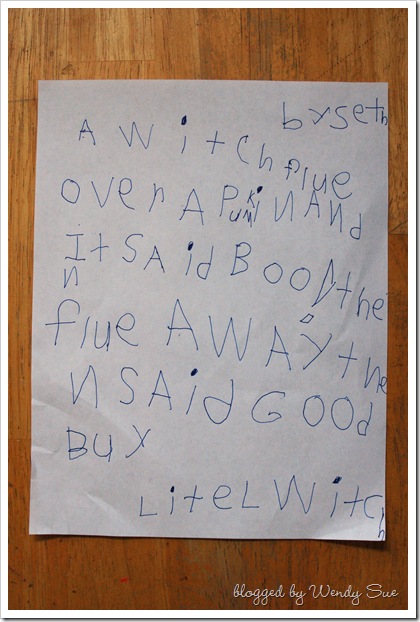 by seth
A Witch flue
over A PUmkiN ANd
It SAid Boo! the
n
flue AWAy the
N SAid GOOd
BUy
LiteL Witch
blogged by Wendy Sue